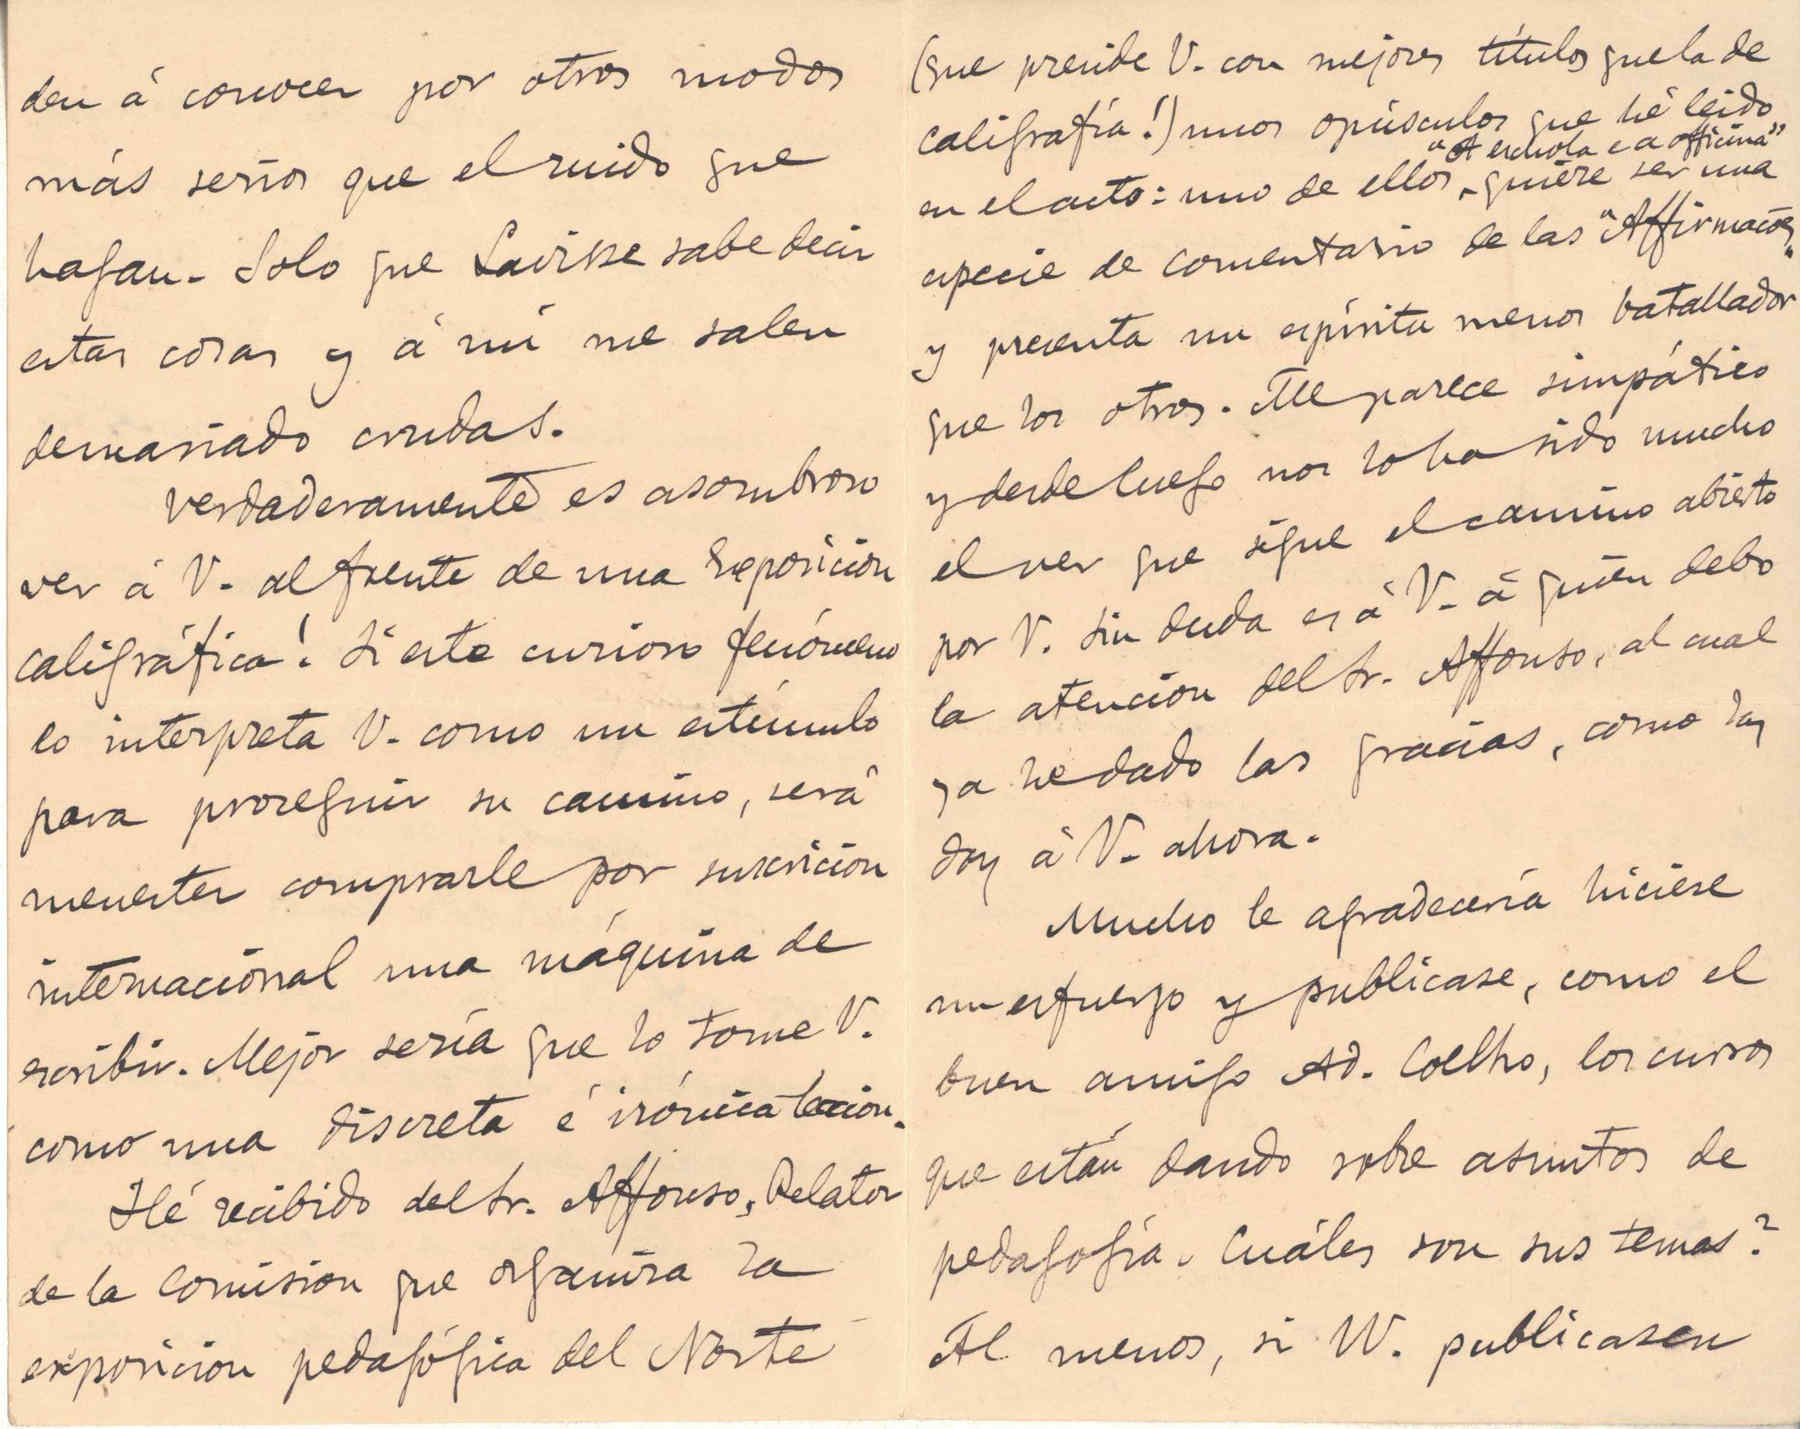 den á conocer por otros modos
más serios que el ruido que
hagan. Solo que Lavisse sabe decir
estas cosas y á mí me salen
demasiado crudas.
Verdaderamente es asombroso
ver á V. al frente de una Exposicion
caligráfica! Si este curioso fenómeno
lo interpreta V. como un estímulo
para proseguir su camino, será
menester comprarle por suscricion
internacional una máquina de
escribir. Mejor sería que lo tome V.
como una discreta é irónica leccion.
Hé recibido del Sr. Affonso, Relator
de la Comision que organiza la
exposicion pedagógica del Norte
(que preside V. con mejores títulos que la de
caligrafía!) unos opúsculos que hé leido
en el acto: uno de ellos, "A eschola e a officina" quiere ser una
especie de comentario de las "Affirmações"
y presenta un espíritu menos batallador
que los otros. Me parece simpático
y desde luego nos lo ha sido mucho
el ver que sigue el camino abierto
por V. Sin duda es á V. á quien debo
la atencion del Sr. Affonso, al cual
ya he dado las gracias, como las
doy á V. ahora.
Mucho le agradecería hiciese
un esfuerzo y publicase, como el
buen amigo Ad. Coelho, los cursos
que están dando sobre asuntos de
pedagogía. Cuáles son sus temas?
Al menos, si VV. publicasen